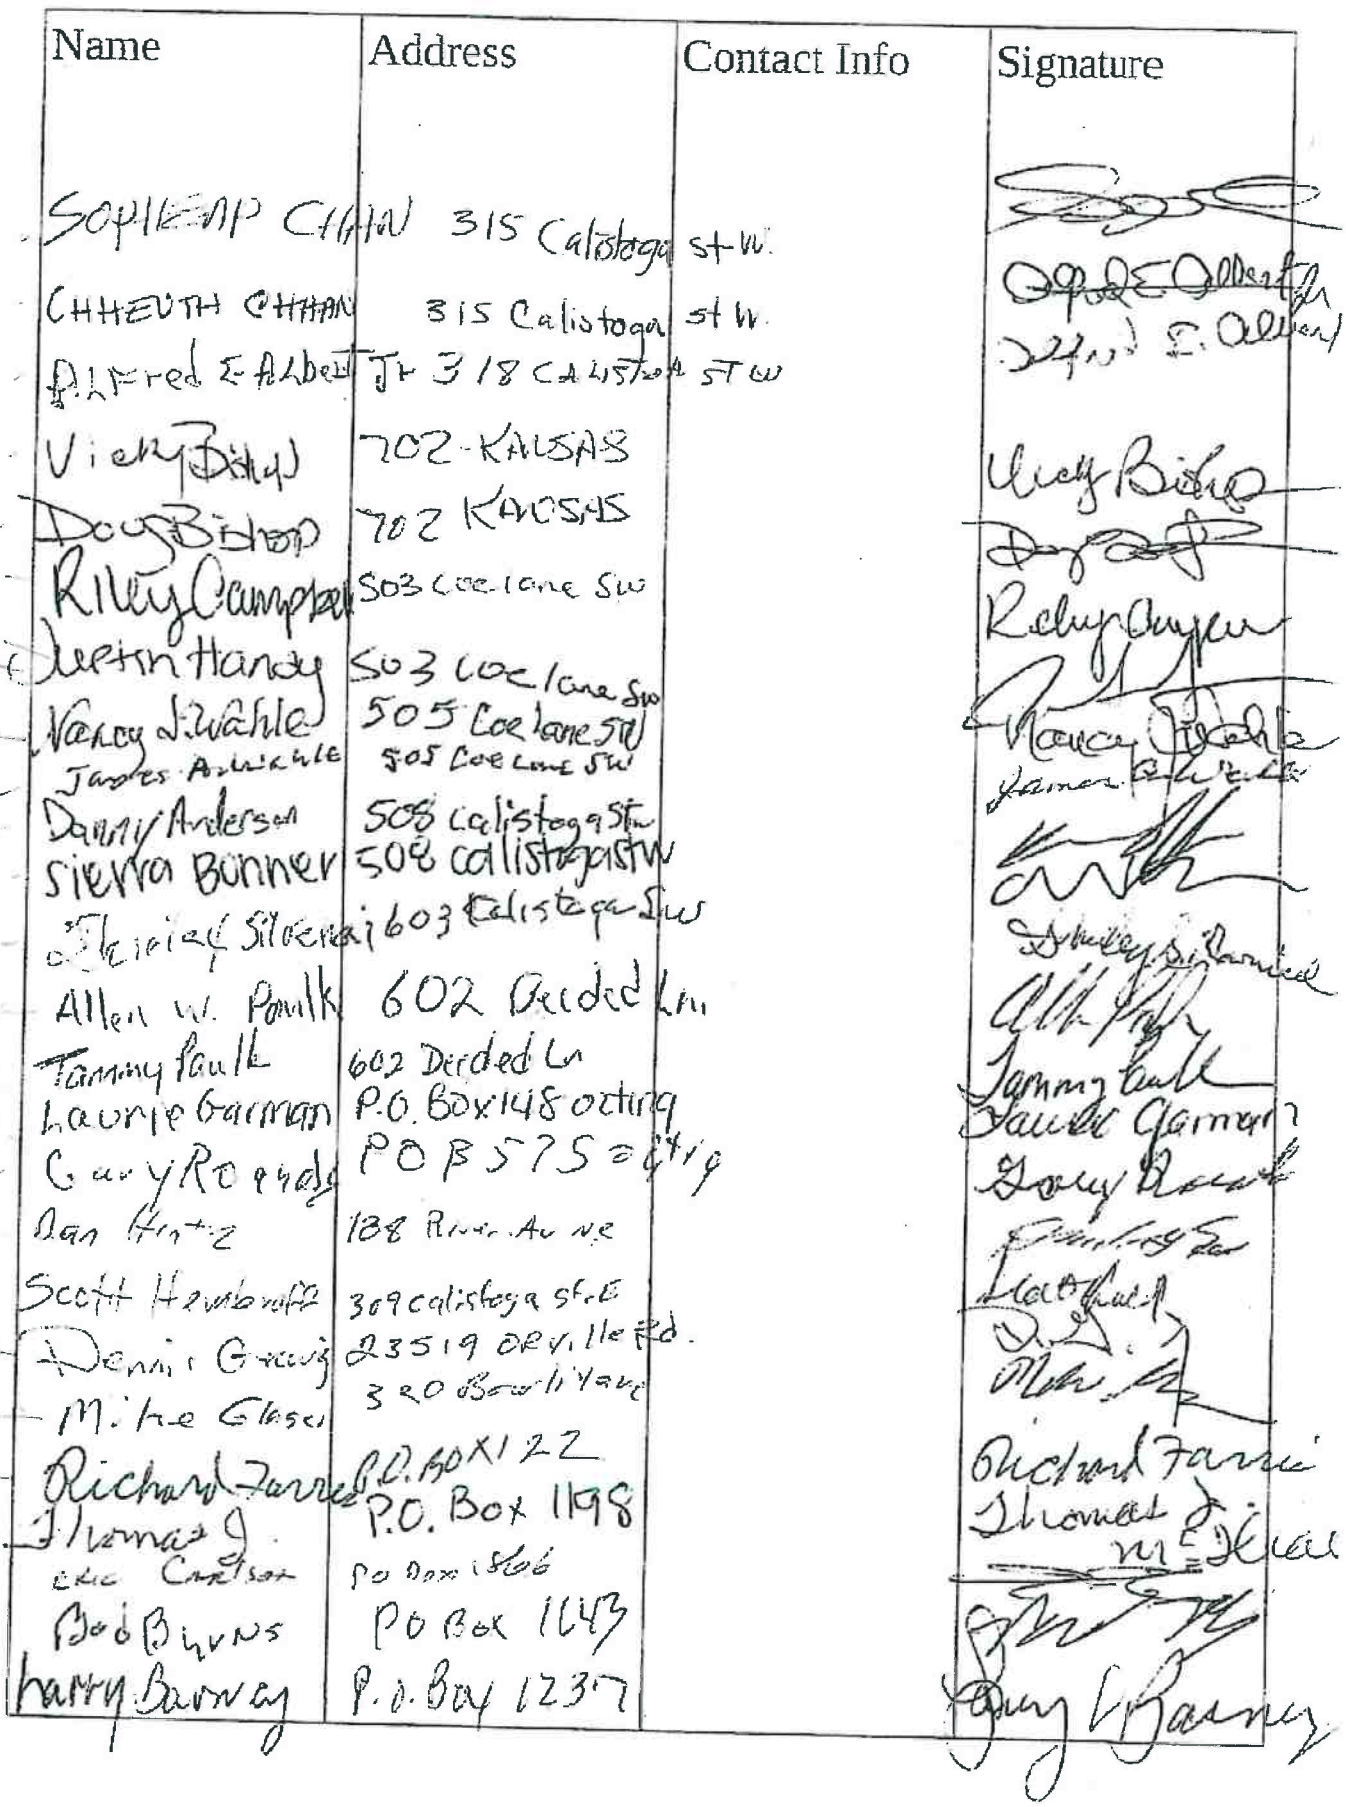 Name Address Contact Info Signature
CHHAN 315 Calistoga st W.
CHHEUTH CHHAN 315 Calistoga st W.
ALFred E Albert Jr 318 CALISTOGA ST W
Alfred E Albert Jr
Alfred E. Albert
Vicky Bishop 702 KANSAS Vicky Bishop
Doug Bishop 702 KANSAS
Riley Campbell 503 Coe lane SW Riley
Justin Handy 503 Coe lane SW
Nancy J. Wahle 505 Coe lane SW Nancy J Wahle
James A. Wahle 505 Coe Lane SW James A. Wahle
Danny Anderson 508 calistoga St W
Sierra Bonner 508 calistoga st W
603 Kalistoga SW
Allen W. Paulk 602 Deeded Ln.
Tammy Paulk 602 Deeded Ln Tammy Paulk
Laurie Garman P.O. Box 148 orting Laurie Garman
Gary P O B 575 orting Gary
Dan Hintz 138 River Av NE
Scott 309 calistoga st. E
Dennis 23519 ORville Rd. D. G.
Mike Glaser 320
Richard Farris P.O. BOX 122 Richard Farris
Thomas J. P.O. Box 1198 Thomas J.
Eric Carlson PO Box 1866
Bob Byrns PO Box 1643
Larry Barney P.O. Box 1237 Larry Barney